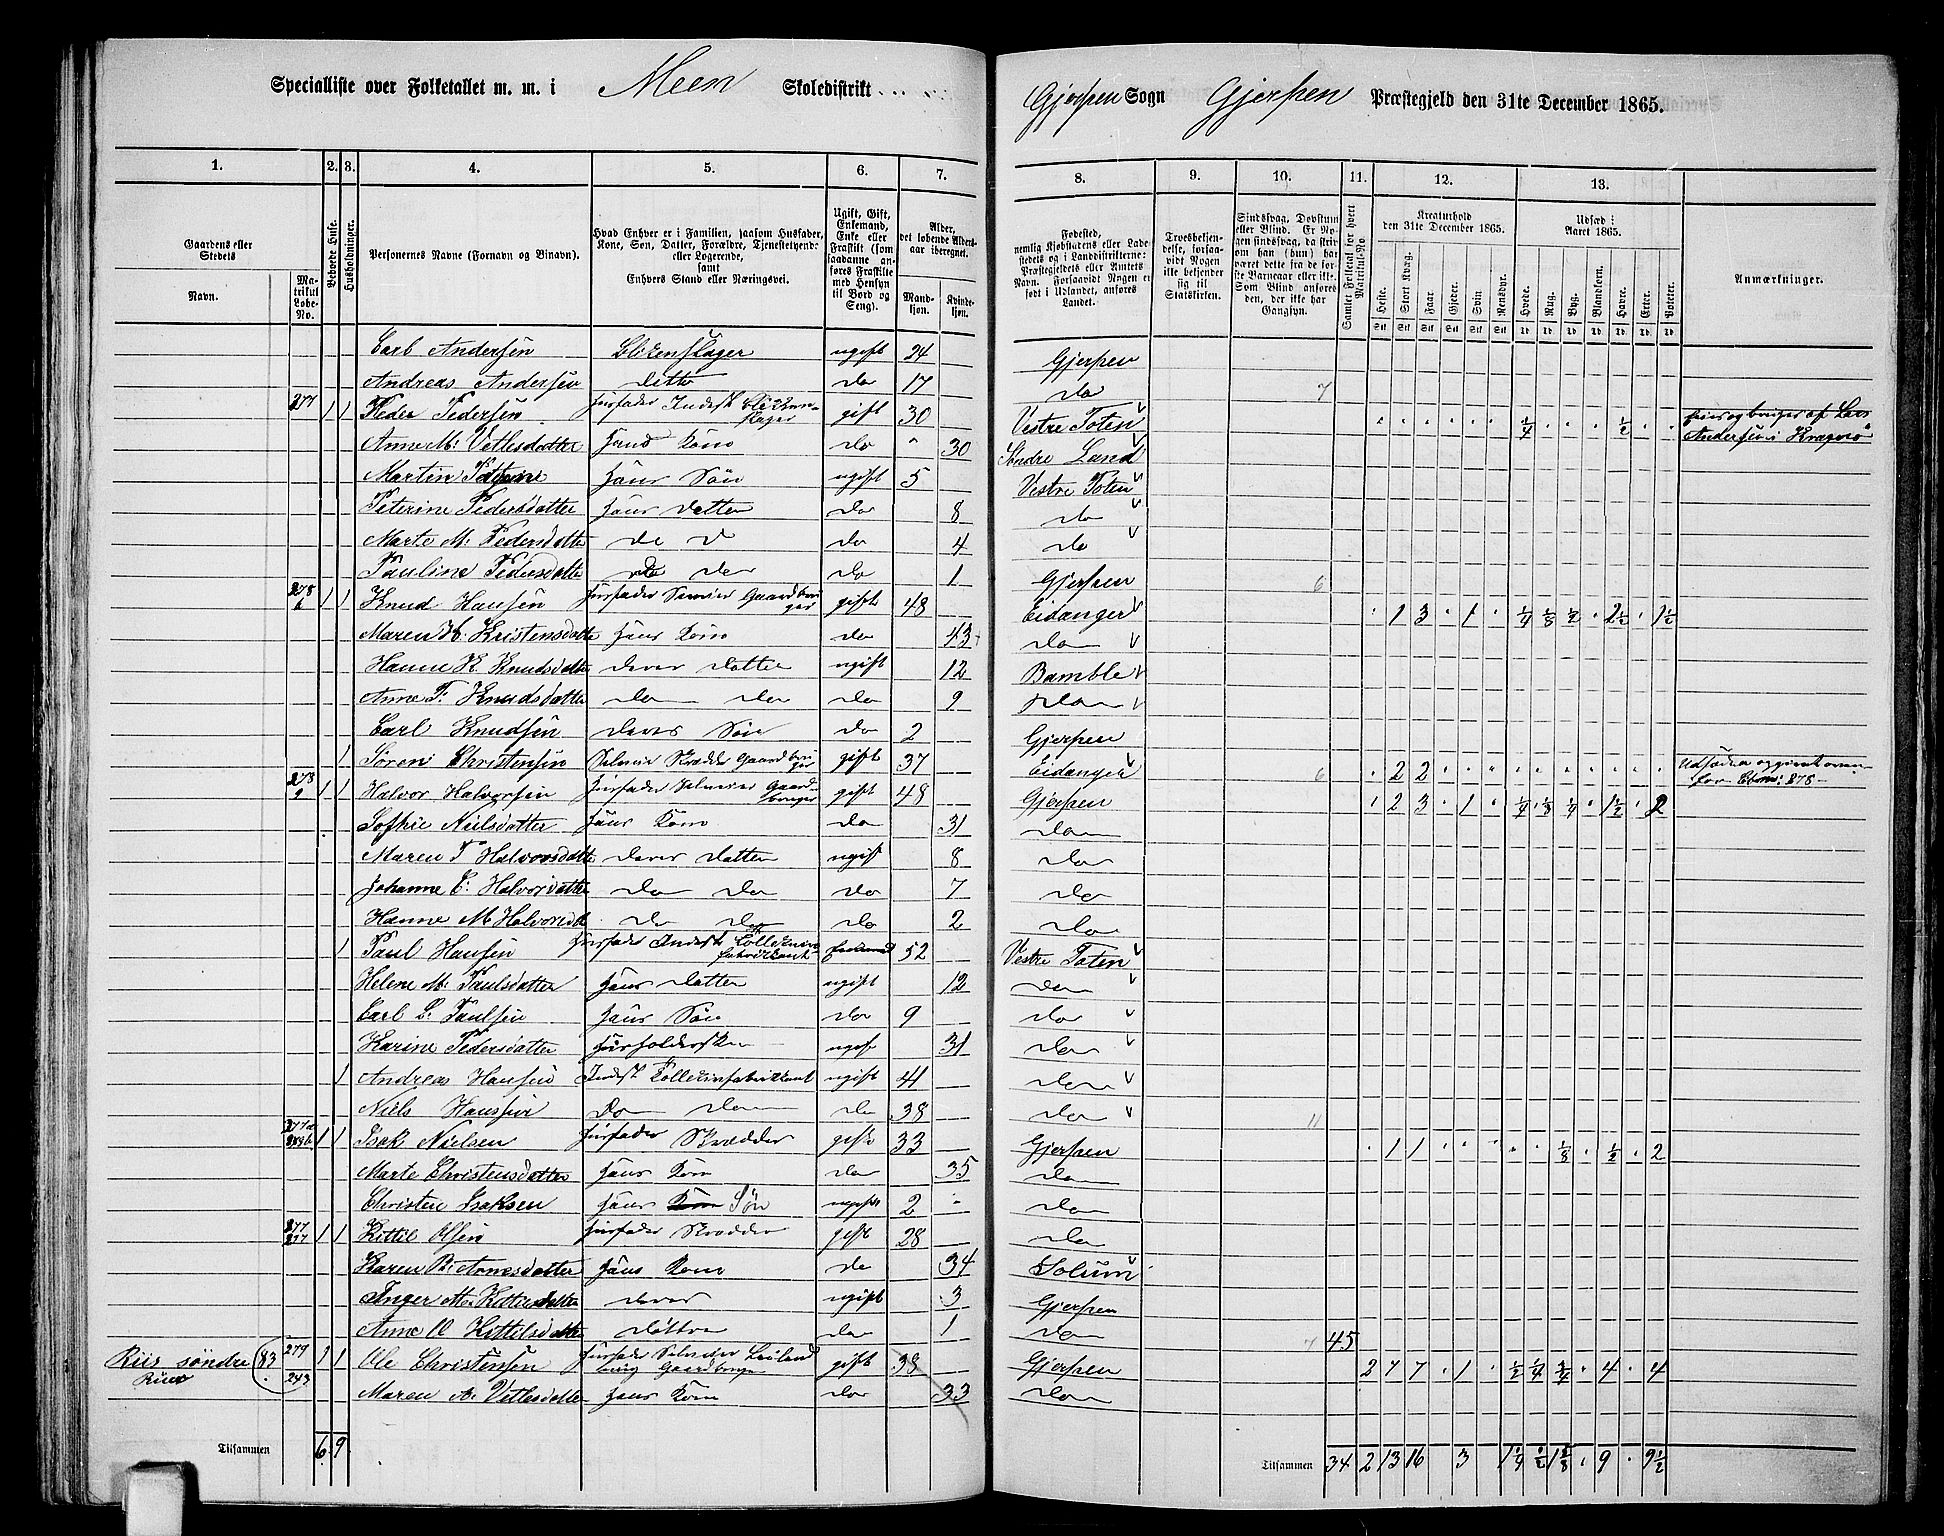 Specialliste over Folketallet m. m. i Meen Skoledistrikt
Gjerpen Sogn Gjerpen Præstegjeld den 31te December 1865.
1. 2. 3. 4. 5. 6. 7. 8. 9. 10. 11. 12. 13.
Gaardens eller Stedets
Navn.
Matrikul Løbe-No.
Beboede Huse.
Husholdninger.
Personernes Navne (Fornavn og Binavn).
Hvad Enhver er i Familien, saasom Husfader, Kone, Søn, Datter, Forældre, Tjenestetyende eller Logerende, samt Enhvers Stand eller Næringsvei.
Ugift, Gift, Enkemand, Enke eller Fraskilt (saasom saadanne anføres Fraskilte med Hensyn til Bord og Seng).
Alder, det løbende Aldersaar iberegnet.
Mandkjøn. Kvindekjøn.
Fødested, nemlig Kjøbstadens eller Ladestedets og i Landdistrikterne: Præstegjeldets eller Amtets Navn. Forsaavidt Nogen er født i Udlandet, anføres Landet.
Troesbekjendelse, forsaavidt Nogen ikke bekjender sig til Statskirken.
Sindssvag, Døvstum eller Blind.
Samlet Folketal for hvert Matrikul-No.
Kreaturhold den 31te December 1865.
Heste. Stort Kvæg. Faar. Gjeder. Svin. Rensdyr.
Udsæd i Aaret 1865.
Hvede. Rug. Byg. Blandkorn. Havre. Erter. Poteter.
Anmærkninger.
Carl Andersen Blikenslager ugift 24 Gjerpen
Andreas Andersen ditto do 17 do 7
277 1 1 Peder Pedersen Husfader Inderst Blikkenslager gift 30 Vestre Toten 1/4 1/2
Anne M: Vetlesdatter Hans Kone do 30 Søndre Land
Martin Hans Søn ugift 5 Vestre Toten
Peterine Pedersdatter Hans Datter do 8 do
Marte M. Pedersdatter do d do 4 do
Pauline Pedersdatter do do do 1 Gjerpen 6
278 1 1 Knud Hansen Husfader Selveier Gaardbruger gift 48 Eidanger 1 3 1 1/4 1/8 1/2 2 1/2 1 1/2
Maren K: Kristensdatter Hans Kone do 43 do
Hanne K. Knudsdatter deres Datter ugift 12 Bamble
Anne T. Knudsdatter do do do 9 do
Carl Knudsen deres Søn do 2 Gjerpen
1 Søren Christensen Selveier Skrædder Gaardbruger gift 37 Eidanger 6 2 2
1 1 Halvor Halvorsen Husfader Selveier Gaardbruger gift 48 Gjerpen 2 3 1 1/4 1/8 1/4 1 1/2 2
Sofhie Nielsdatter Hans Kone do 31 do
Maren T Halvorsdatter deres Datter ugift 8 do
Johanne C: Halvorsdatter do do do 7 do
Hanne M Halvorsdt do do do 2 do
1 Paul Hansen Husfader Inderst 52 Vestre Toten
Helene M: Paulsdatter Hans Datter ugift 12 do
Carl L: Paulsen Hans Søn do 9 do
Karine Pedersdatter Husholderske ugift 31 do
1 Andreas Hansen Inderst ugift 41 do
Niels Hanssen do do do 38 do 11
1 1 Isak Nielsen Husfader Skrædder gift 33 Gjerpen 1 1 1/8 1/2 2
Marte Christensdatter Hans Kone do 35 do
Christen Isaksen Hans Søn ugift 2 do
277 1 1 Kittil Olsen Husfader Skrædder gift 28 do
Karen B: Arnesdatter Hans Kone do 34 Solum
Inger M. Kittilsdatter deres ugift 3 Gjerpen
Anne O Kittilsdatter Døttre do 1 do 7 45
Riis søndre 83 279 243 1 1 Ole Christensen Husfader Selveier Gaardbruger gift 38 Gjerpen 2 7 7 1 1/2 1/4 3/4 4 4
Maren A. Vetlesdatter Hans Kone do 33 do
Tilsammen 6 9
Tilsammen 34 2 13 16 3 1 1/4 1/2 1 5/8 9 9 1/2